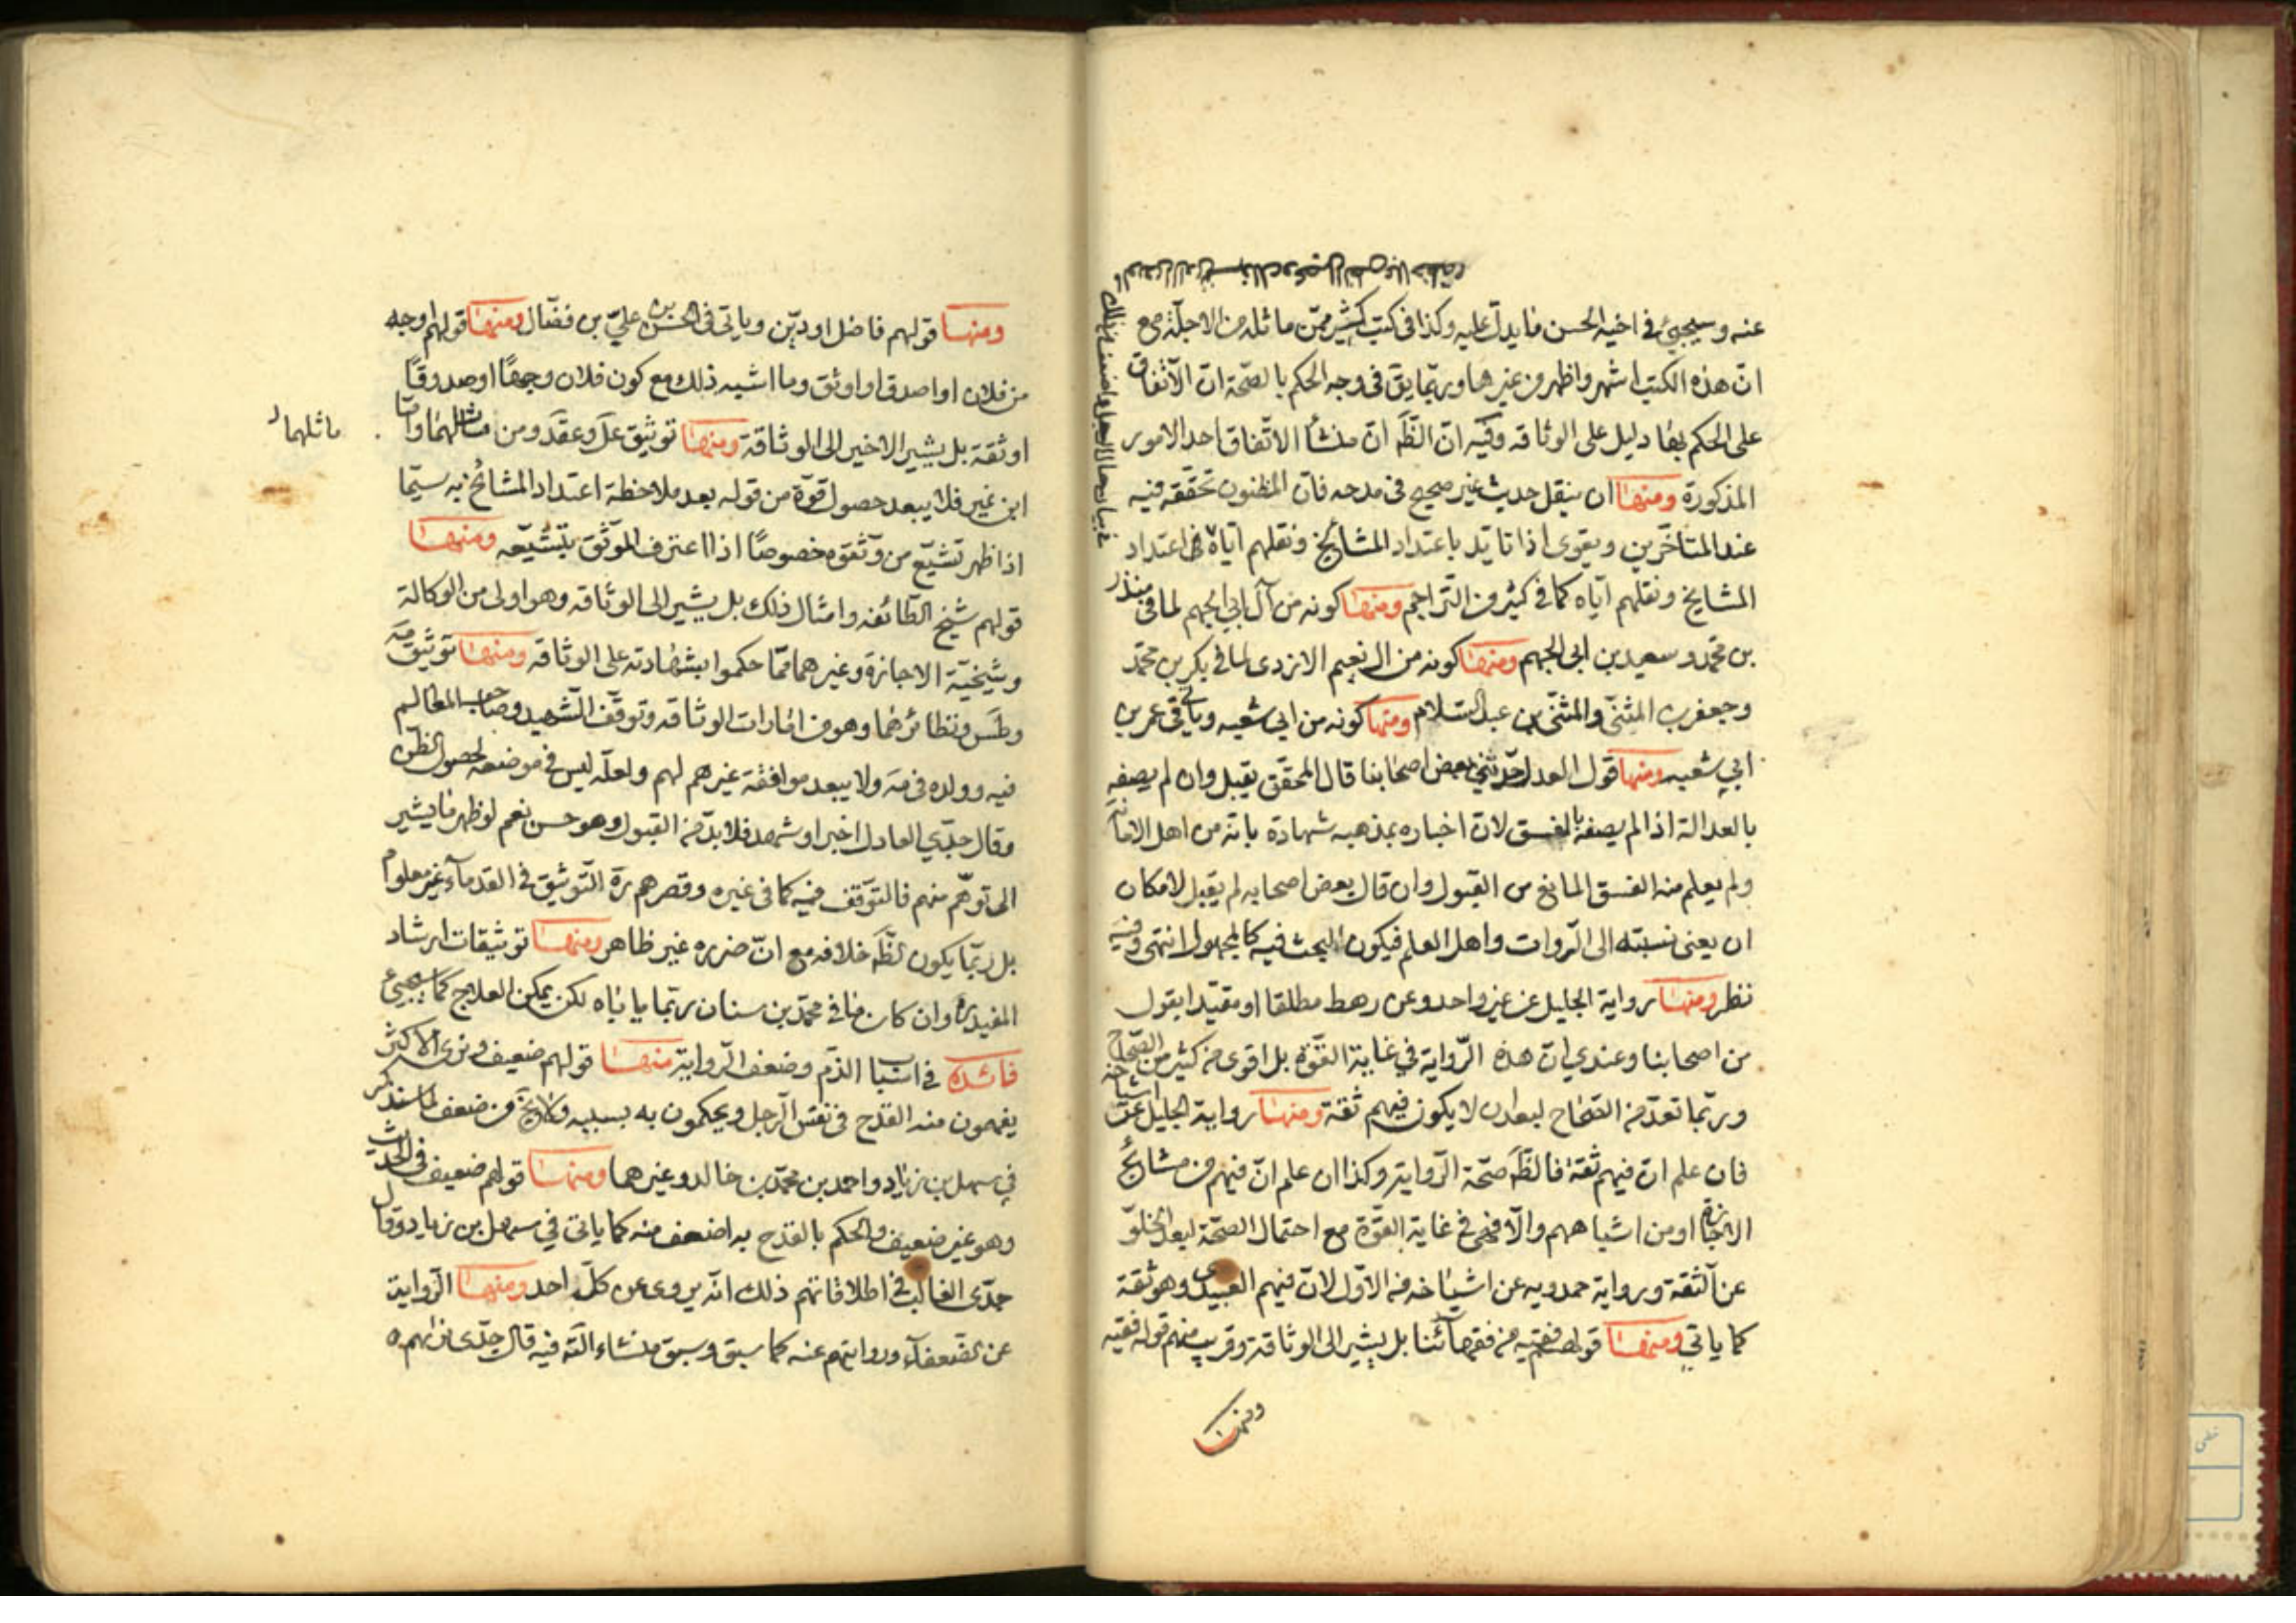 عنه وسيجئ في اخيه الحسن ما يدل عليه وكذا في كتب كثير ممن ماثله من الاجلة مع
ان هذه الكتب اشهر واظهر من غيرها وربما يق في وجه الحكم بالصحة ان الاتفاق
على الحكم بها دليل على الوثاقه وفيه ان الظَّ ان منشأ الاتفاق احد الامور
المذكورة ومنها ان ينقل حديث غير صحيح في مدحه فان المظنون تحققه فيه
عند المتاخرين ويقوى اذا تايد باعتداد المشائخ ونقلهم اياه في اعتداد
المشايخ ونقلهم اياه كما في كثير من التراجم ومنها كونه من آل ابي الجهم لما في منذر
بن محمد وسعيد بن ابى الجهم ومنها كونه من ال نعيم الازدى لما في بكر بن محمد
وجعفر بن المثنى والمثنى بن عبد السلام ومنها كونه من ابي شعبه وياتي في عمر بن
ابي شعبه ومنها قول العدل حدثني بعض اصحابنا قال المحقق يقبل وان لم يصفه
بالعدالة اذا لم يصفه بالفسق لان اخباره بمذهبه شهادة بانه من اهل الامانه
ولم يعلم منه الفسق المانع من القبول وان قال بعض اصحابه لم يقبل لامكان
ان يعنى نسبته الى الروات واهل العلم فيكون البحث فيه كالمجهول انتهى وفيه
نظر ومنها رواية الجليل عن غير واحد وعن رهط مطلقا او مقيدا بقول
من اصحابنا وعندي ان هذه الرواية في غاية القوة بل اقوى من كثير من الصحاح
وربما تعد من الصحاح لبعد ان لا يكون فيهم ثقة ومنها رواية الجليل عن اشياخه
فان علم ان فيهم ثقة فالظَّ صحة الرواية وكذا ان علم ان فيهم من مشائخ
الاجازة او من اشباههم والا فهي في غاية القوة مع احتمال الصحة لبعد الخلو
عن الثقة ورواية حمدويه عن اشياخه من الاول لان فيهم العبيدى وهو ثقة
كما ياتي ومنها قولهم فقيه من فقهائنا بل يشير الى الوثاقة وقريب منهم قوله فقيه
ومنها
ومنها قولهم فاضل او دين وياتى فى الحسن بن علي بن فضال ومنها قولهم اوجه
من فلان او اصدق او اوثق وما اشبه ذلك مع كون فلان وجها او صدوقا
او ثقة بل يشير الاخير الى الوثاقة ومنها توثيق عل وعقد ومن ماثلهما واما
ماثلهما
ابن نمير فلا يبعد حصول قوة من قوله بعد ملاحظة اعتداد المشائخ به سيما
اذا ظهر تشيع من وثقوه خصوصا اذا اعترف الموثق بتشيعه ومنها
قولهم شيخ الطائفه وامثال ذلك بل يشير الى الوثاقه وهو اولى من الوكالة
وشيخية الاجازة وغيرهما مما حكموا بشهادته على الوثاقه ومنها توثيق مه
وطس ونظائرهما وهو من امارات الوثاقه وتوقف الشهيد وصاحب المعالم
فيه وولده فى مه ولا يبعد موافقة غيرهم لهم ولعله ليس في موضعه لحصول الظن
وقال جدي العادل اخبر او شهد فلا بد من القبول وهو حسن نعم لو ظهر ما يشير
الى توهم منهم فالتوقف فيه كما فى غيره وقصرهم رة التوثيق في القدماء غير معلوم
بل ربما يكون الظَّ خلافه مع ان ضرره غير ظاهر ومنها توثيقات ارشاد
المفيد ره وان كان ما في محمد بن سنان ربما ياباه لكن يمكن العلاج كما سيجيئ
فائده في اسباب الذم وضعف الرواية منها قولهم ضعيف ونرى الاكثر
يفهمون منه القدح في نفس الرجل ويحكمون به بسببه ولا يخ من ضعف لما سنذكر
في سهل بن زياد واحمد بن محمد بن خالد وغيرهما ومنها قولهم ضعيف فى الحديث
وهو غير ضعيف والحكم بالقدح به اضعف منه كما ياتى في سهل بن زياد وقال
جدى الغالب في اطلاقاتهم ذلك انه يروى عن كل احد ومنها الرواية
عن الضعفاء وروايتهم عنه كما سبق وسبق منشاء التة فيه قال جدى